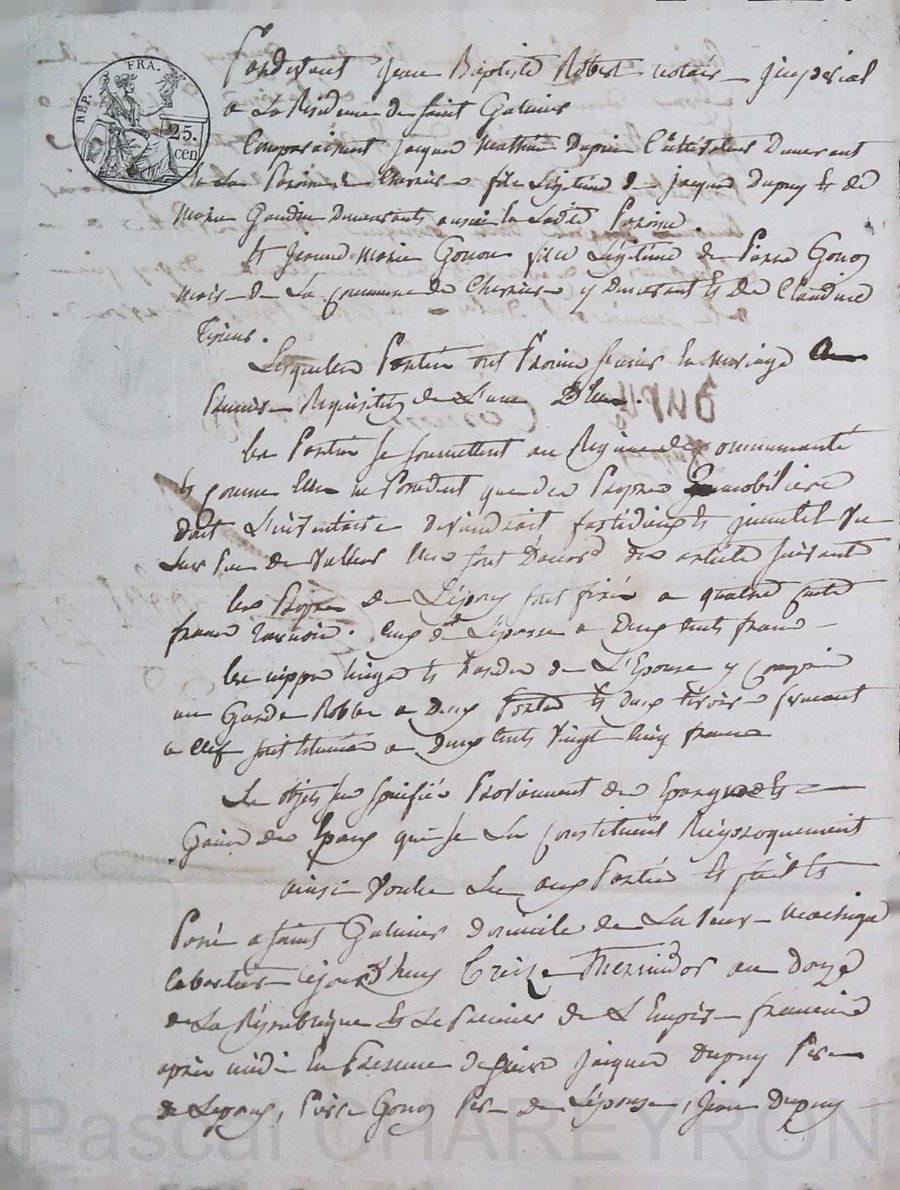 REP. FRA.
25.
cen
Pardevant Jean Baptiste Robert notaire imperial
a La Residence de saint Galmier
Comparaissent jacque Mathieu Dupuy Cultivateur Demeurant
La Paroisse de Chevrier fils Legitime de jacque Dupuy et de
Marie demeurants aussi en Ladite Paroisse
Et jeanne Marie Gonon fille Légitime de Pierre Gonon
de La Commune de Chevrier y demeurant et de Claudine
Lesquelles Parties ont Promis s'unir en Mariage a
Premiere Requisition de L'une D'elles.
Les Parties se soumettent au Regime de Communauté
Et comme elles ne Possedent que des Propres immobiliers
dont L'inventaire deviendroit fastidieux et inutile vu
Leur peu de valleur elles sont D'accord des articles suivants
Les Propres de L'époux sont fixés a quatre cents
francs Ceux de L'épouse a Deux cents francs
Les nippes linges et hardes de L'Epouse y compris
un Garde Robbe a Deux Portes et deux tiroirs fermant
a clef sont estimés a Deux cents vingt cinq francs
Les objets sus spécifiés Proviennent des Epargnes et
Gains des Epoux qui se Les constituent Réciproquement
ainsi voulu Lu aux Parties et fait et
Passé a saint Galmier domicile de
cabaretier cejourd'huy Treize Thermidor an Douze
de La République et Le Premier de L'Empire français
après midi En Presence de sieurs jacque Dupuy Pere
de Lepoux, Pierre Gonon Pere de L'épouse, jean Dupuy
Pascal CHAREYRON